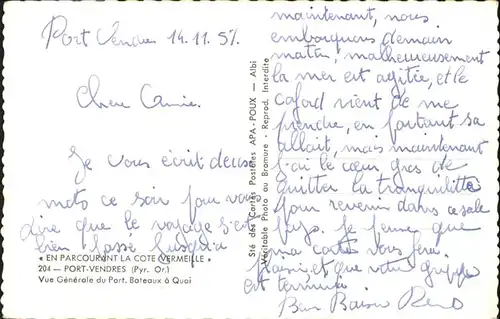 Port Vendres 14.11.57
Chère Annie.
Je vous écrit deux
mots ce soir pour vous
dire que le voyage s'est
bien passé jusqu'a
maintenant, nous
embarquons demain
matin, malheureusement
la mer est agitée, et le
cafard vient de me
prendre, en partant sa
allait, mais maintenant
j'ai le cœur gros de
quitter la tranquilitée
pour revenir dans ce sale
pays. Je pense que
ma carte vous fera
plaisir, et que votre grippe
est terminée.
Bon Baiser René
« EN PARCOURANT LA COTE VERMEILLE »
204 — PORT-VENDRES (Pyr. Or.)
Vue Générale du Port. Bateaux à Quai
Sté des Cartes Postales APA-POUX — Albi
Véritable Photo au Bromure - Reprod. Interdite